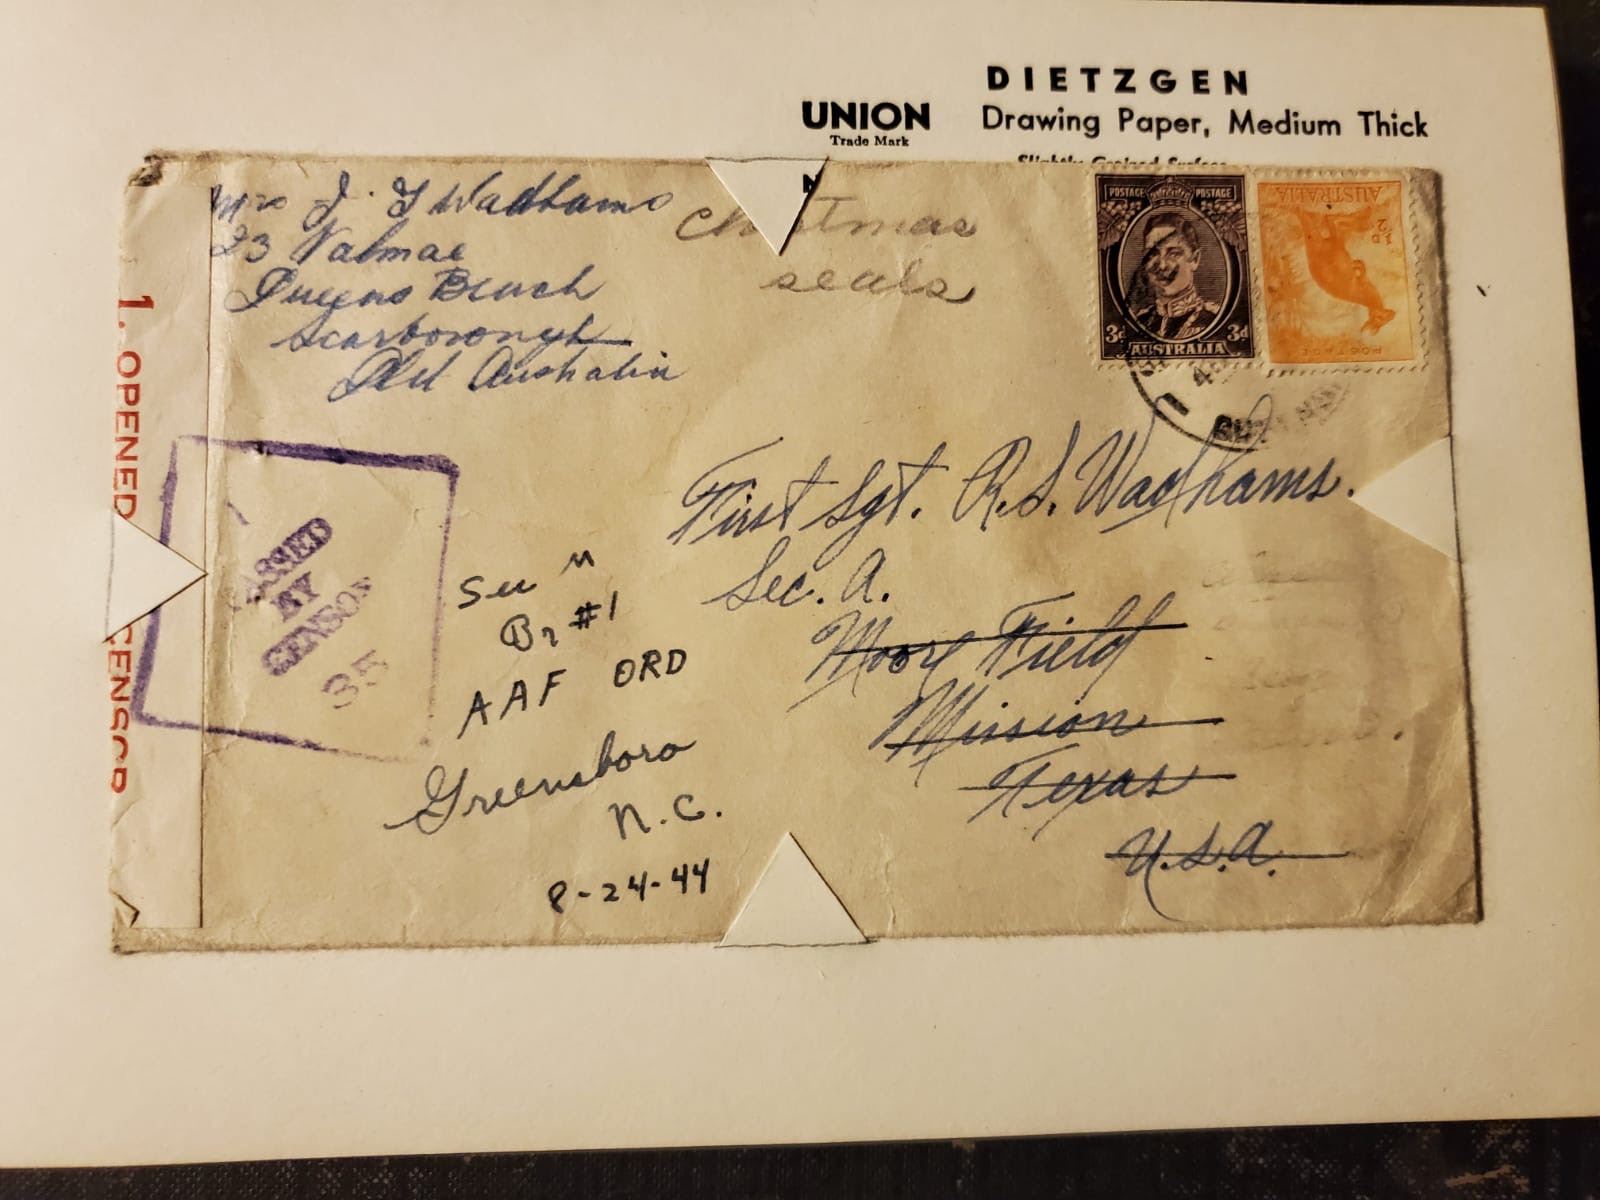 DIETZGEN
UNION
Trade Mark
Drawing Paper, Medium Thick
Slightly Grained Surface
Mrs J. G Wadhams
23
Queens Beach
Scarborough
Australia
Christmas
seals
POSTAGE POSTAGE
3d 3d
AUSTRALIA
AUSTRALIA
½d
POSTAGE
1. OPENED
CENSOR
PASSED
BY
CENSOR
35
First Sgt. R.S. Wadhams.
Sec. A.
Moore Field
Mission
Texas
U.S.A.
Sec M
Br #1
AAF ORD
Greensboro
N.C.
8-24-44